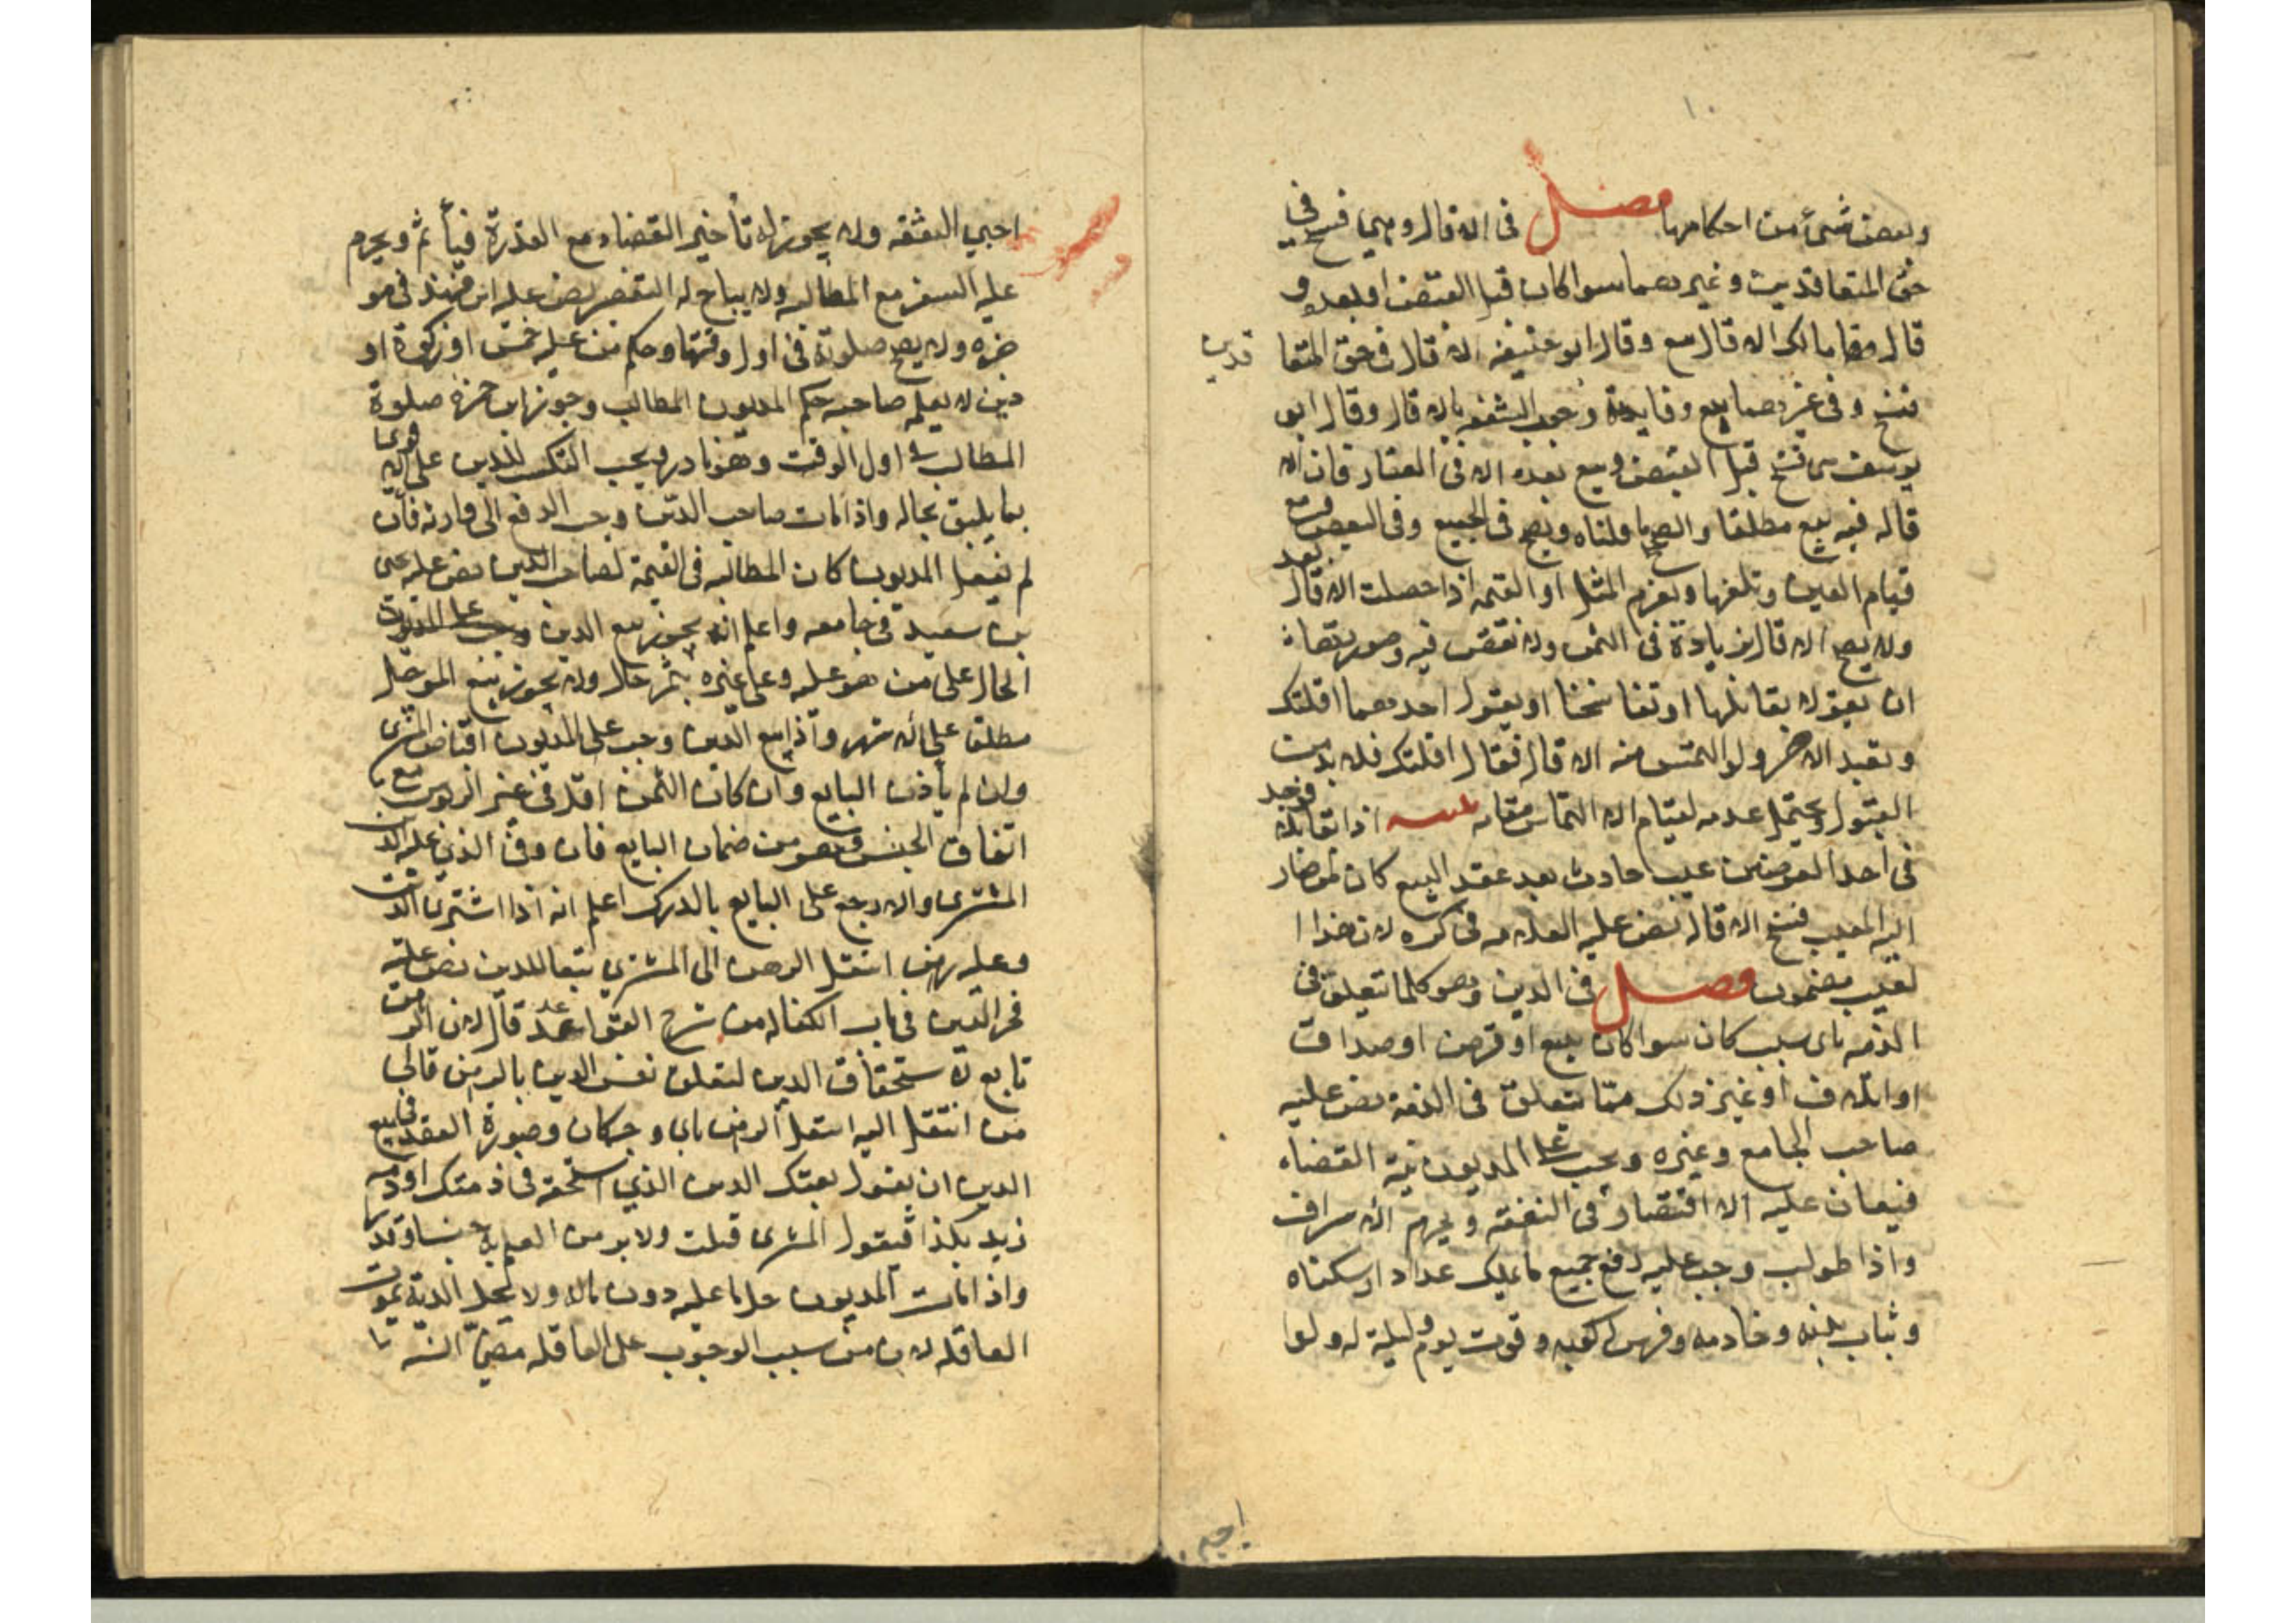 وبعض شئ من احكامها فصل فى الاقاله وهي فسخ فى
حق المتعاقدين وغيرهما سوا كان قبل القبض او بعده و
قال مالك الاقاله بيع وقال ابو حنيفه الاقاله فى حق المتعا
قدين
فسخ وفى غيرهما بيع وفايدة وجوب الشفعه بالاقاله وقال ابو
يوسف هى فسخ قبل القبض وبيع بعده الا فى العقار فان الا
قاله فيه بيع مطلقا والصحيح ما قلناه ويصح فى الجميع وفى البعض ومع
قيام العين وتلفها ويغرم المثل او القيمه اذا حصلت الاقاله بعد
ولا يصح الاقاله بزيادة فى الثمن ولا نقص فيه وصورتها
ان يقولا تقايلنا او تفاسخنا او يقول احدهما اقلتك
ويقبل الاخر ولو التمس منه الاقاله فقال اقلتك فلا بد من
القبول ويحتمل عدمه لقيام الالتماس مقامه اذا تقايلا فوجد
فى احد العوضين عيب حادث بعد عقد البيع كان لمن صار
اليه المعيب فسخ الاقاله نص عليه العلامه فى لان هذا ا
لعيب مضمون فصل فى الدين وهو كلما تعلق فى
الذمه باى سبب كان سوا كان ببيع او قرض او صداق
او اتلاف او غير ذلك مما يتعلق فى الذمة نص عليه
صاحب الجامع وغيره ويجب على المديون نية القضاء
فيعان عليه الاقتصار فى النفقه ويحرم الاسراف
واذا طولب وجب عليه دفع جميع ما يملك عدا دار سكناه
وثياب بدنه وخادمه وفرس ركوبه وقوت يوم وليلة له ولوا
اجبي النفقه ولا يجوز له تأخير القضاء مع القدرة فيأثم ويحرم
عليه السفر مع المطالبه ولا يباح له التقصير نص عليه ابن فهد فى مو
جزه ولا يصح صلوته فى اول وقتها وحكم من عليه خمس او زكوة او
دين لا يعلم صاحبه حكم المديون المطالب وجوز ابن حمزه صلوة
المطالب فى اول الوقت وهو نادر ويجب التكسب للدين على الاقوى
بما يليق بحاله واذا مات صاحب الدين وجب الدفع الى وارثه فان
لم يفعل المديون كان المطالبه فى القيمة لصاحب الدين نص عليه يحيى
بن سعيد فى جامعه واعلم انه يجوز بيع الدين
الحال على من هو عليه وعلى غيره بثمن حال ولا يجوز بيع المؤجل
مطلقا على الاشهر واذا بيع الدين وجب على المديون اقباض المشترى
وان لم يأذن البايع وان كان الثمن اقل فى غير الربوى مع
اتفاق الجنس وهو من ضمان البايع فان وفى الذى عليه الدين
المشترى والا رجع على البايع بالدرك اعلم انه اذا اشترى الدين
وعليه رهن انتقل الرهن الى المشترى تبعا للدين نص عليه
فخر الدين فى باب الكفاله من شرح القواعد قال لان الرهن
تابع لاستحقاق الدين لتعلق نفس الدين بالرهن فالى
من انتقل اليه انتقل الرهن باى وجه كان وصورة العقد فى بيع
الدين ان يقول بعتك الدين الذى استحقه فى ذمتك او ذمه
زيد بكذا فيقول المشترى قبلت ولابد من العلم به جنسا وقدرا
واذا مات المديون حل ما عليه دون ماله ولا يحل الدية بموت
العاقله لان من سبب الوجوب على العاقله مضي السنه